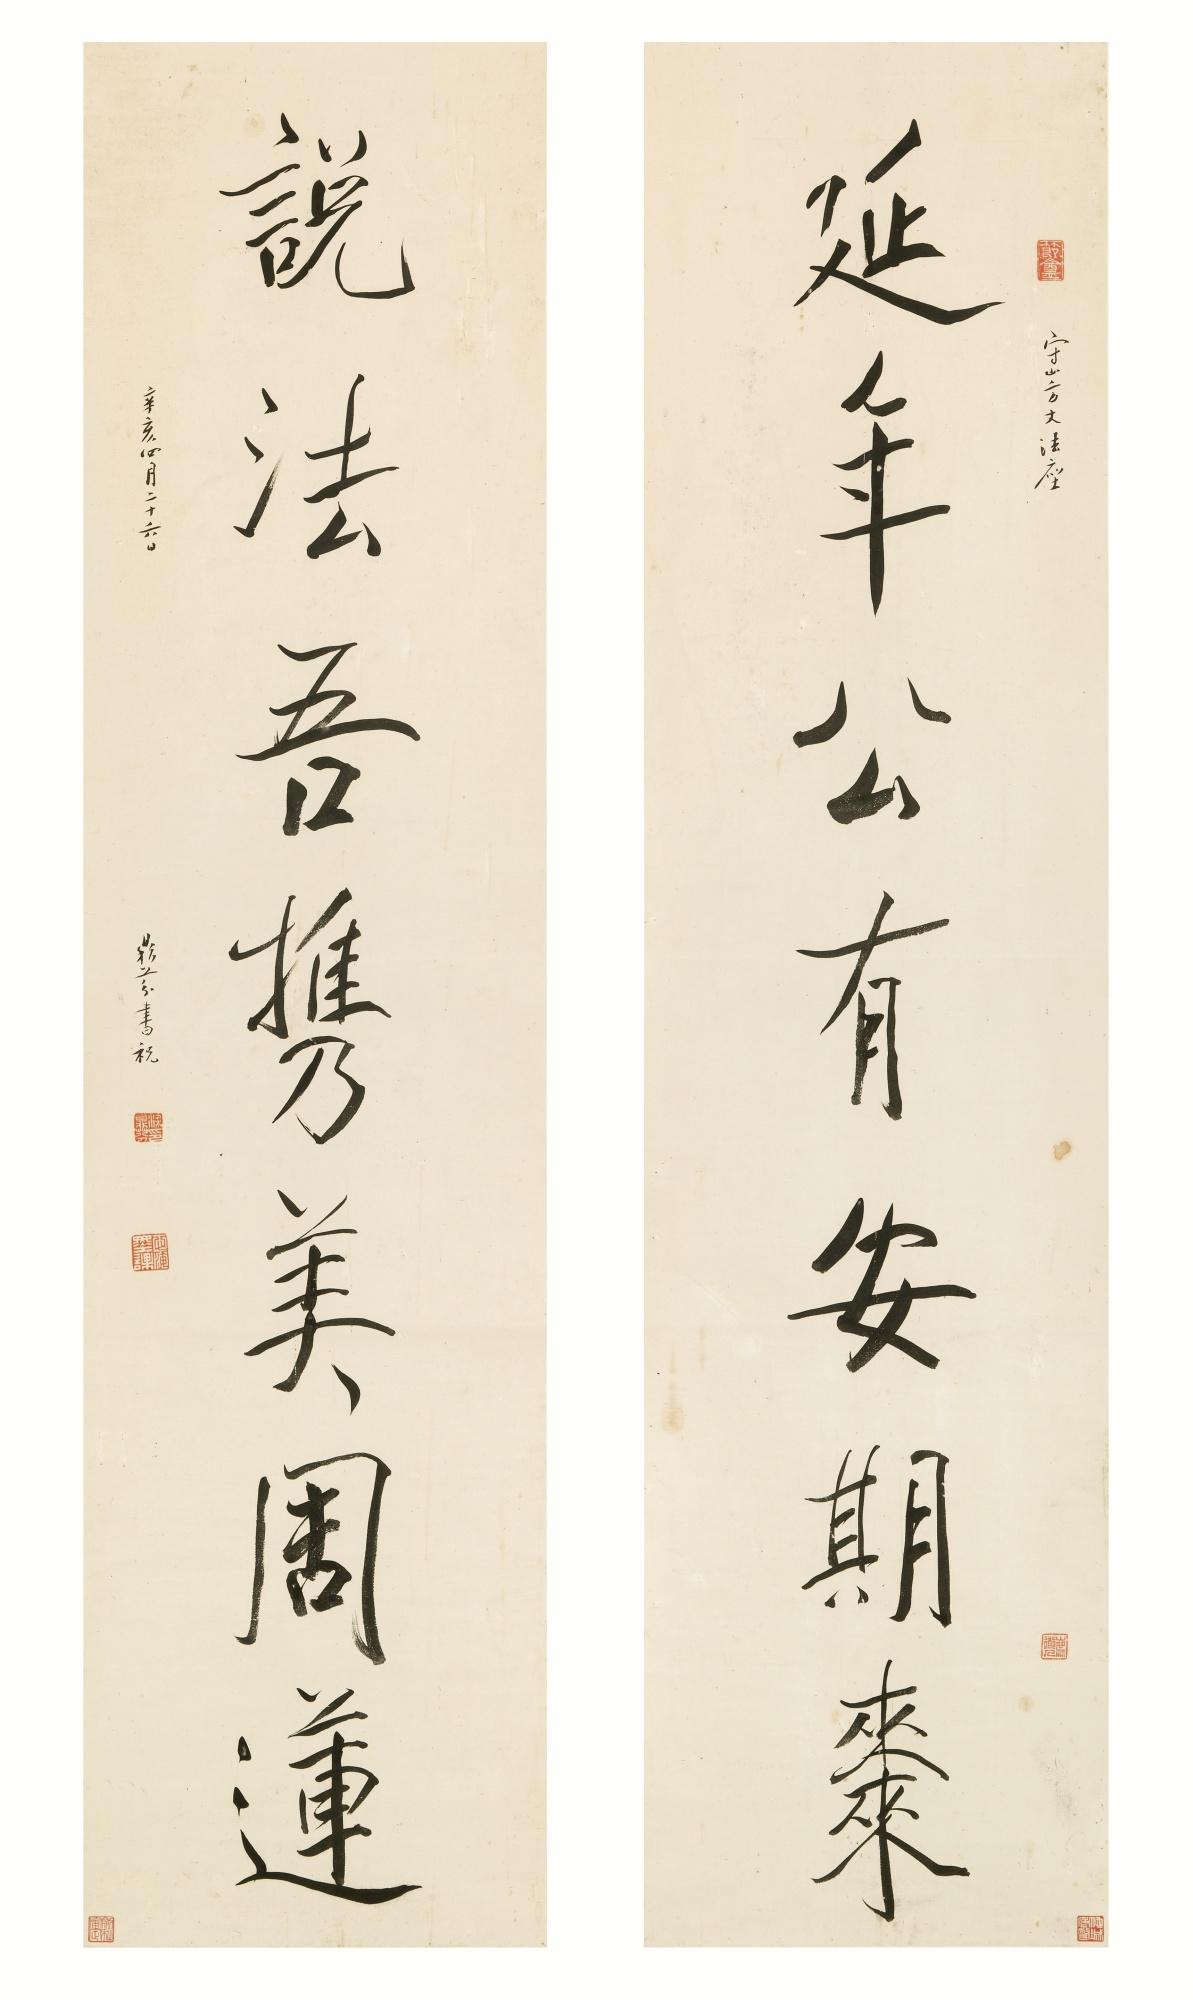 守山方丈法座
延年公有安期棗
說法吾攜美周蓮
辛亥四月二十六日
鼎芬書祝